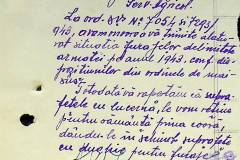 Serv. Agricol.
La ord. Dv. No 7054 și 7293/
943, avem onoarea vă trimite alătu-
rat situația furajelor delimitate
armatei pe anul 1943, conf. dis-
pozițiunilor din ordinele de mai
sus.
Totodată vă raportăm că supra-
fețele cu lucernă, le vom reține
pentru sămânță prima coasă,
dându-le în schimb suprafețe
cu pentru furaje